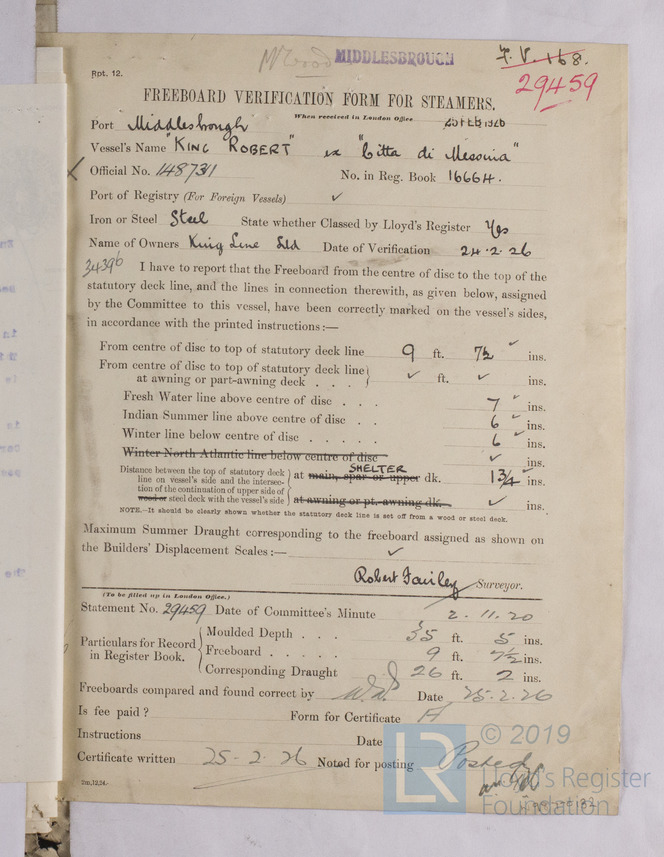 Rpt. 12.
McWood
MIDDLESBROUGH
F.V. 168.
29459
FREEBOARD VERIFICATION FORM FOR STEAMERS.
When received in London Office
Port Middlesbrough 25 FEB 1926
Vessel's Name "KING ROBERT" ex "Citta di Messina"
Official No. 148731 No. in Reg. Book 16664.
Port of Registry (For Foreign Vessels) ✓
Iron or Steel Steel State whether Classed by Lloyd's Register Yes
Name of Owners King Line Ltd Date of Verification 24.2.26
34396
I have to report that the Freeboard from the centre of disc to the top of the
statutory deck line, and the lines in connection therewith, as given below, assigned
by the Committee to this vessel, have been correctly marked on the vessel's sides,
in accordance with the printed instructions:—
From centre of disc to top of statutory deck line 9 ft. 7½ ins.
From centre of disc to top of statutory deck line
at awning or part-awning deck . . . ✓ ft. ✓ ins.
Fresh Water line above centre of disc . . . 7 ins.
Indian Summer line above centre of disc . . 6 ins.
Winter line below centre of disc . . . . . 6 ins.
Winter North Atlantic line below centre of disc ✓ ins.
Distance between the top of statutory deck
line on vessel's side and the intersec-
tion of the continuation of upper side of
wood or steel deck with the vessel's side
at main, spar or upper SHELTER dk. 1¾ ins.
at awning or pt. awning dk. ✓ ins.
NOTE.—It should be clearly shown whether the statutory deck line is set off from a wood or steel deck.
Maximum Summer Draught corresponding to the freeboard assigned as shown on
the Builders' Displacement Scales:— ✓
Robert Fairley Surveyor.
(To be filled up in London Office.)
Statement No. 29459 Date of Committee's Minute 2.11.20
Particulars for Record
in Register Book.
Moulded Depth . . . 35 ft. 5 ins.
Freeboard . . . . . 9 ft. 7½ ins.
Corresponding Draught 26 ft. 2 ins.
Freeboards compared and found correct by Date 25.2.26
Is fee paid? Form for Certificate A
Instructions Date
Certificate written 25-2-26 Noted for posting Posted
2m,12,24.
LR
© 2019
Lloyd's Register
Foundation